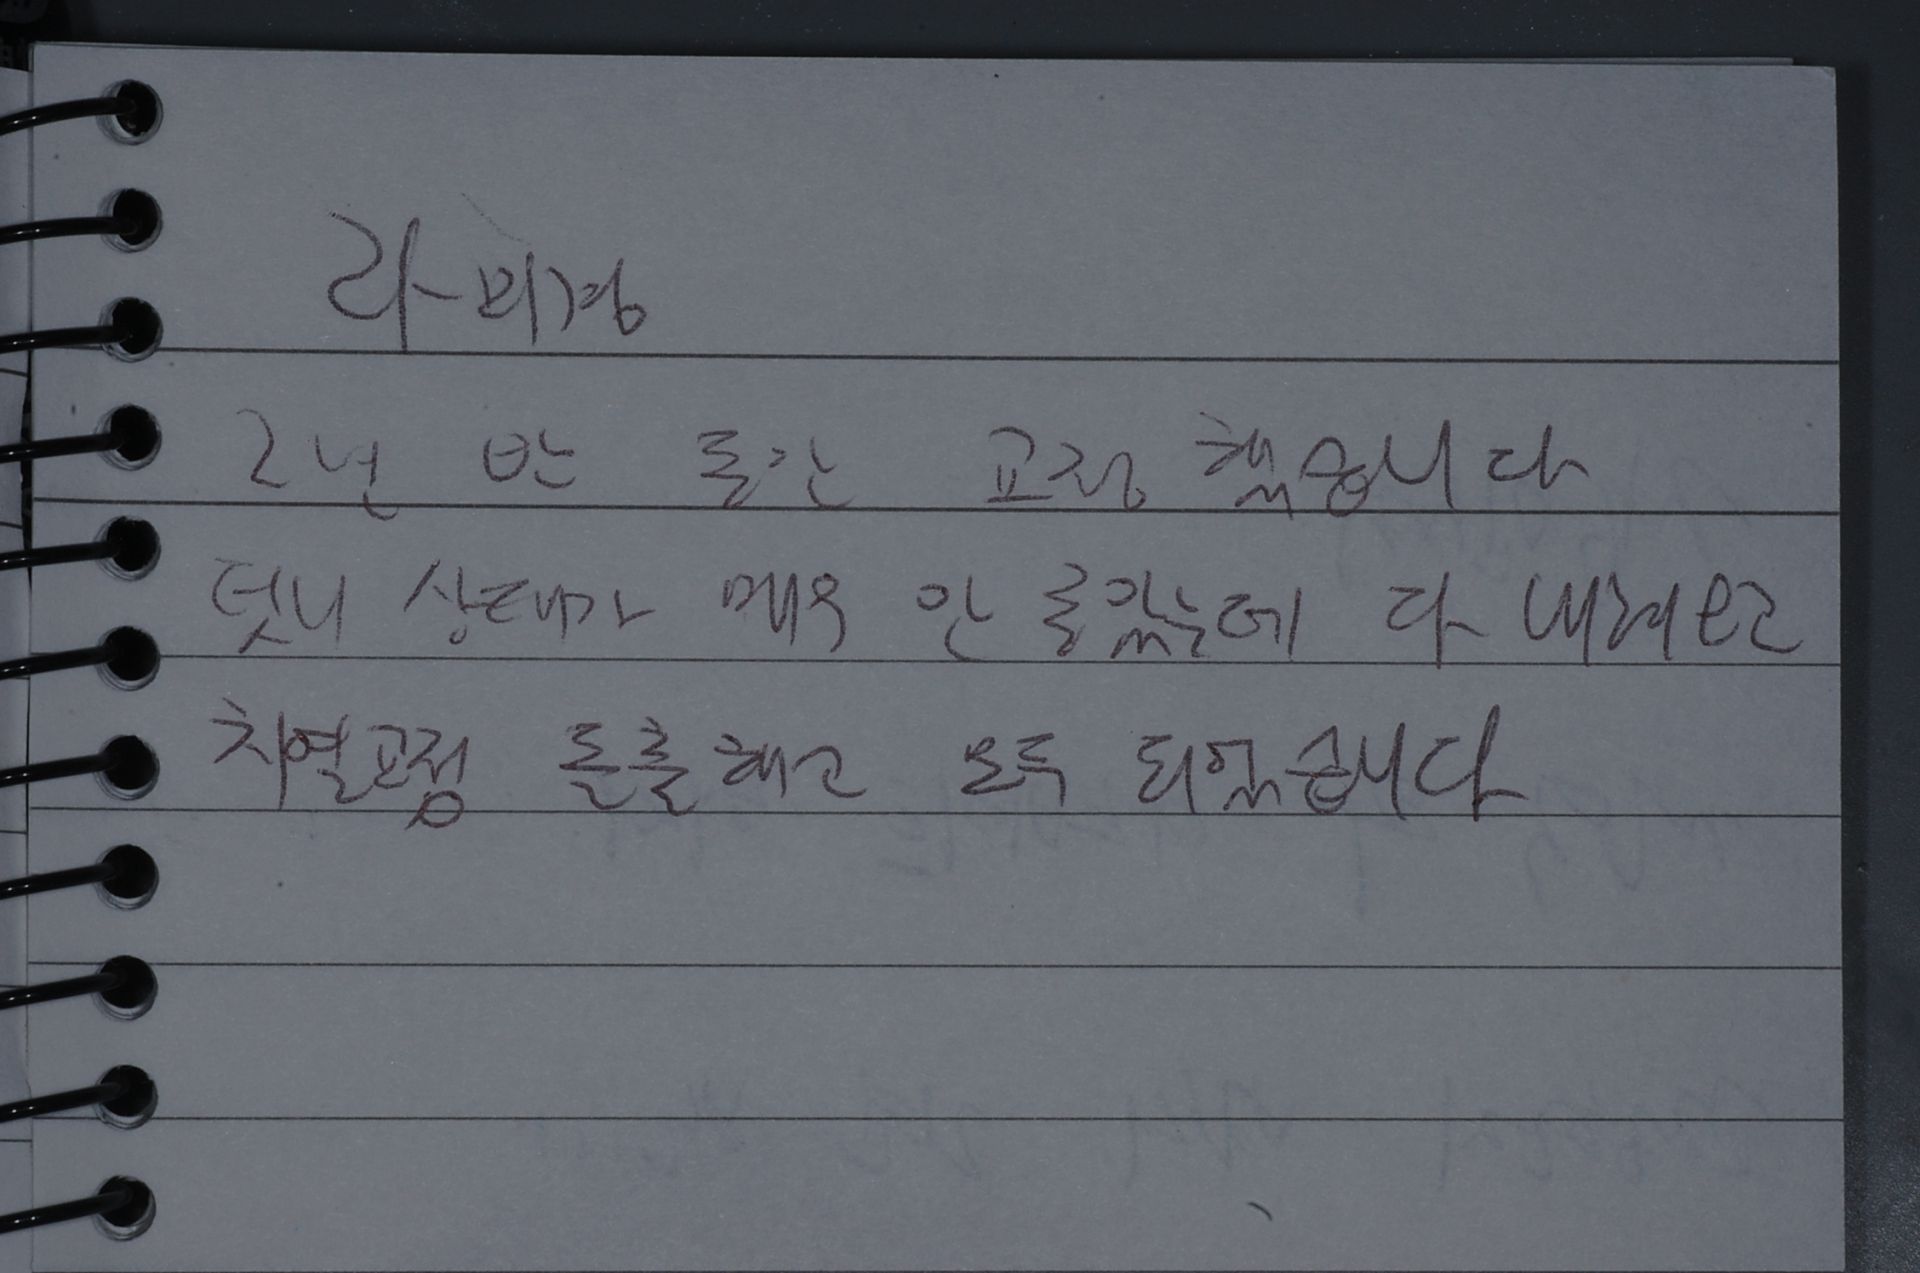 라미경
2년 반 동안 교정 했습니다
덧니 상태가 매우 안 좋았는데 다 내려오고
치열교정 돌출 해고 모두 되었습니다